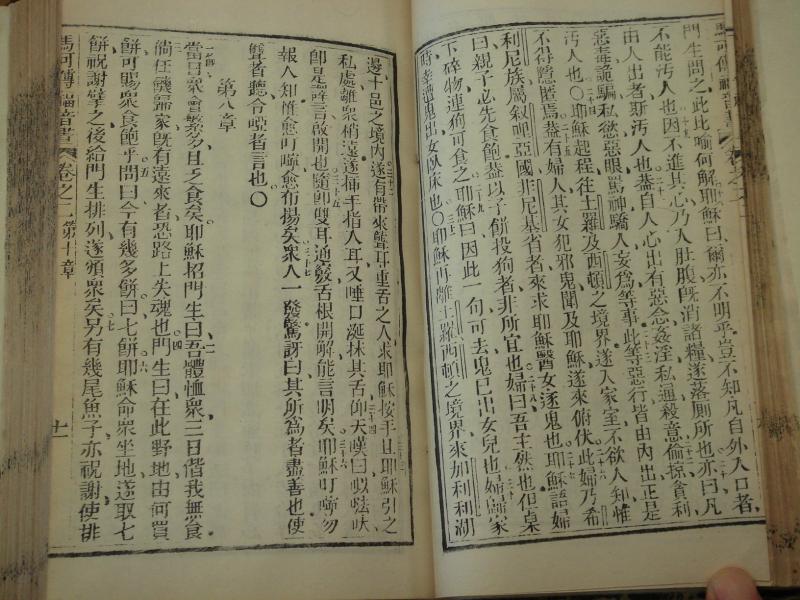 馬可傳福音書 卷之二
門生問之此比喻何解耶穌曰爾亦不明乎豈不知凡自外入口者
不能汚人也因不進其心乃人肚腹旣消諸糧遂落厠所也亦曰凡
由人出者斯汚人也蓋自人心出有惡念姦淫私通殺意偷掠貪利
惡毒詭騙私慾惡眼罵神驕人妄爲等事此等惡行皆由內出正是
汚人也〇耶穌起程往土羅及西頓之境界遂入家室不欲人知惟
不得瞞匿焉蓋有婦人其女犯邪鬼聞及耶穌遂來俯伏此婦乃希
利尼族屬叙哩亞國非尼基省者來求耶穌醫女逐鬼也耶穌語婦
曰親子必先食飽蓋以子餅投狗者非所宜也婦曰吾主然也但桌
下碎物連狗可食之耶穌曰因此一句可去鬼已出女兒也婦歸家
時幸遭鬼出女臥床也〇耶穌再離土羅西頓之境界來加利利湖
邊十邑之境內遂有帶來聾耳重舌之人求耶穌按手且耶穌引之
私處離衆稍遠遂插手指人耳又唾口涎抹其舌仰天嘆曰
卽是譯言啟開也隨卽雙耳通竅舌根開解能言明矣耶穌叮嚀勿
報人知惟愈叮嚀愈布揚矣衆人一發驚訝曰其所爲者盡善也使
聾者聽令啞者言也〇
第八章
當日衆會繁多且乏食矣耶穌招門生曰吾體恤衆三日偕我無食
倘任饑歸家旣有遠來者恐路上失魂也門生曰在此野地由何買
餅可賜衆食飽乎問曰今有幾多餅曰七餅耶穌命衆坐地遂取七
餅祝謝擘之後給門生排列遂頒衆矣另有幾尾魚子亦祝謝使排
馬可傳福音書 卷之二 第十章 十一